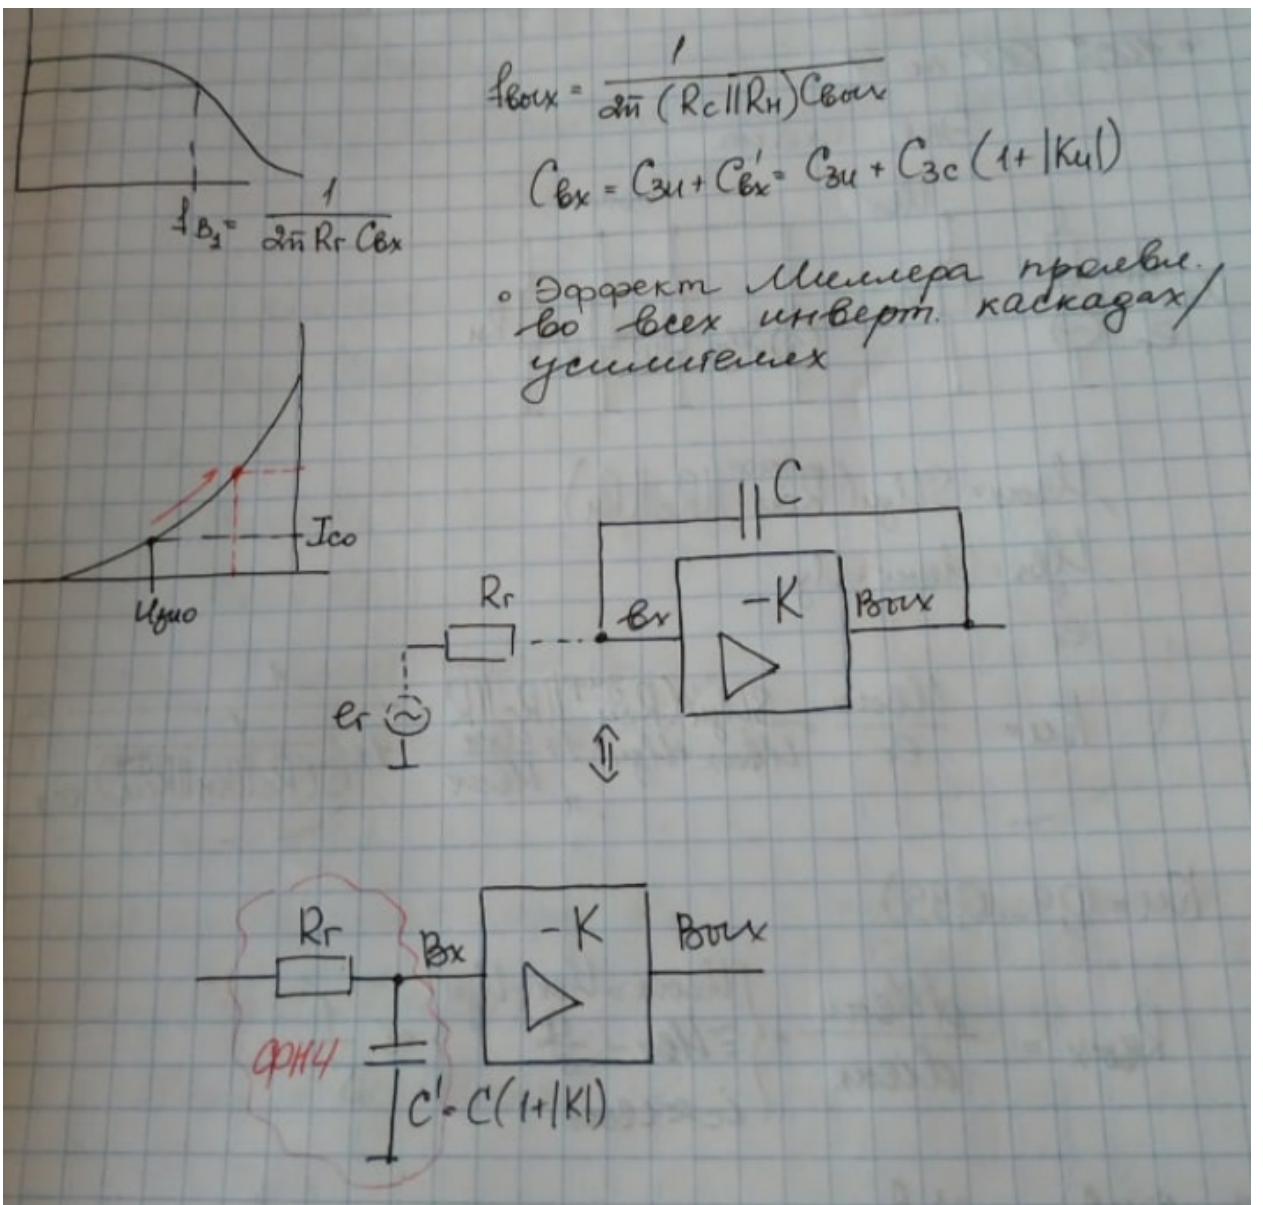 fвых = 1 / 2π (Rc||Rн)Cвых
fв₁ = 1 / 2π Rг Cвх
Cвх = Cзи + C'вх = Cзи + Cзс (1+|Kи|)
• Эффект Миллера проявл.
во всех инверт. каскадах/
усилителях
Iсо
Uзио
C
Rг
вх
-K
Вых
eг
Rг
Вх
-K
Вых
ФНЧ
C' = C(1+|K|)